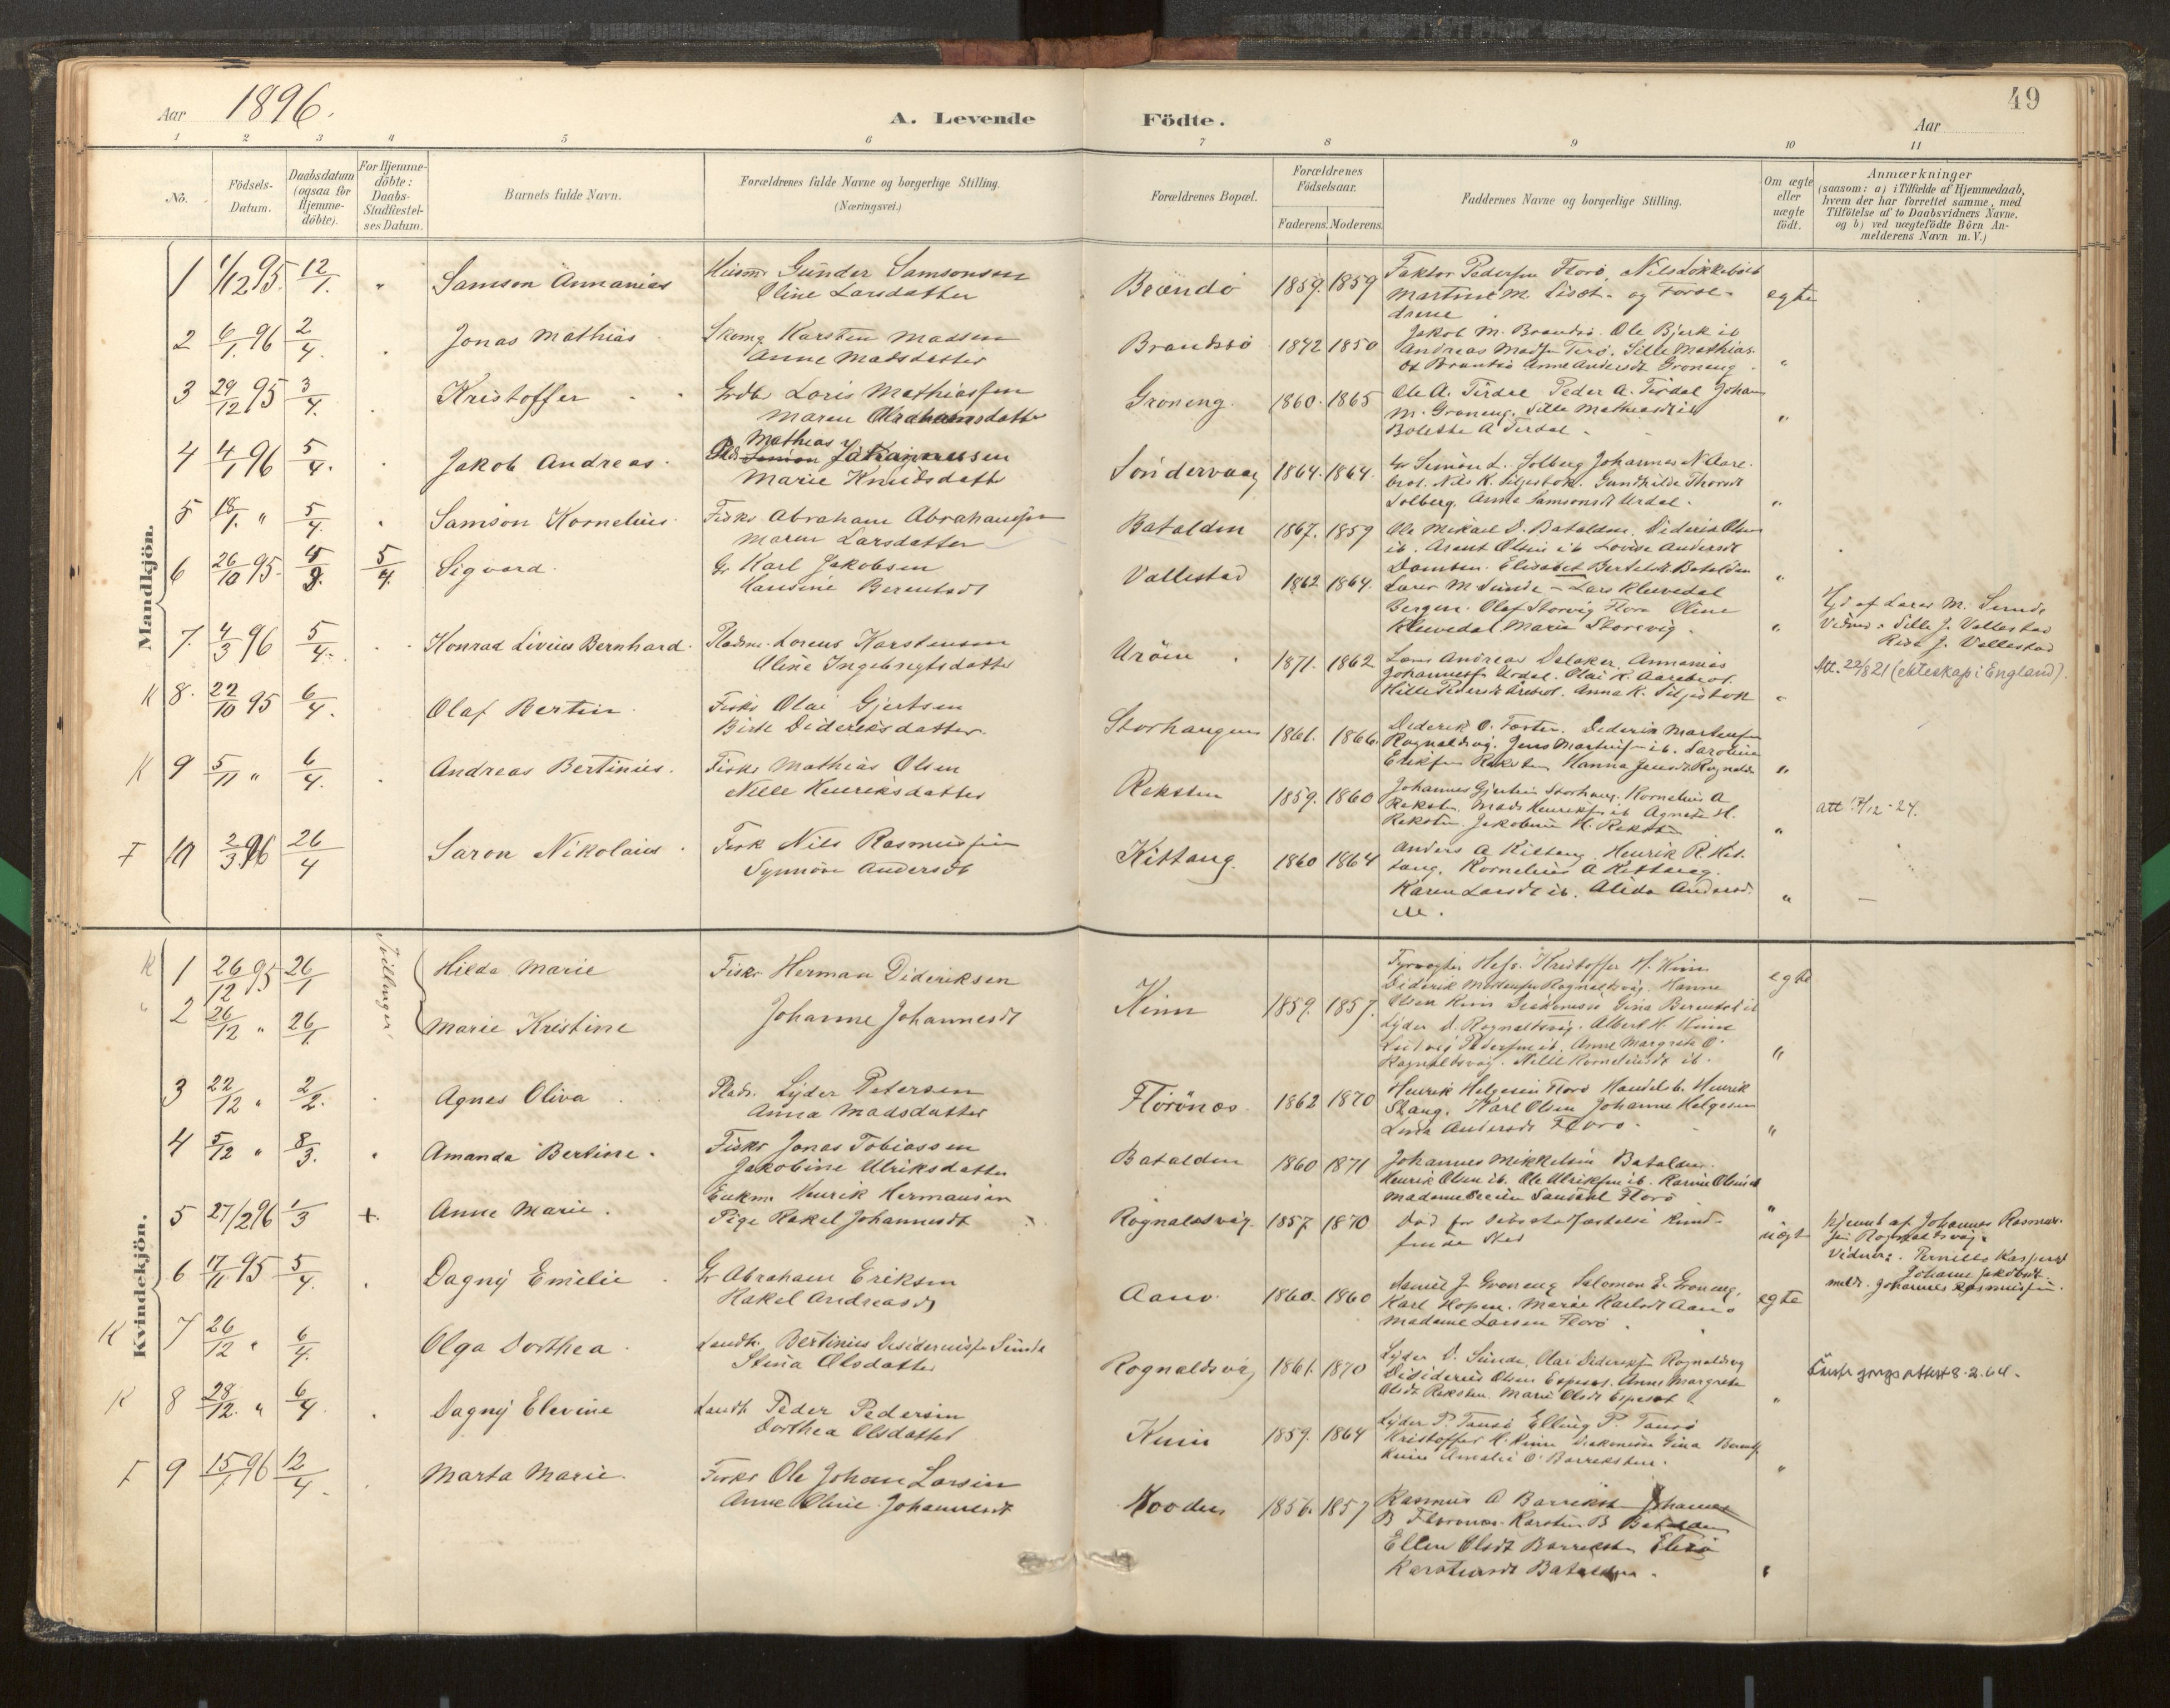 Aar 1896.
A. Levende Födte.
49
Aar
1 2 3 4 5 6 7 8 9 10 11
No.
Födsels-
Datum.
Daabsdatum
(ogsaa for
Hjemme-
döbte).
For Hjemme-
döbte:
Daabs-
Stadfæstel-
ses Datum.
Barnets fulde Navn.
Forældrenes fulde Navne og borgerlige Stilling.
(Næringsvei.)
Forældrenes Bopæl.
Forældrenes
Födselsaar.
Faderens. Moderens.
Faddernes Navne og borgerlige Stilling.
Om ægte
eller
uægte
födt.
Anmærkninger
(saasom: a) i Tilfælde af Hjemmedaab,
hvem der har forrettet samme, med
Tilföielse af to Daabsvidners Navne,
og b) ved uægtefödte Börn An-
melderens Navn m. V.)
Mandkjön.
1 1/12 95. 12/1. " Samson Annanias
Husm Gunder Samsonsen
Oline Larsdatter
Brandsö 1859. 1859
Faktor Pedersen Florö, Nils
Martine M. og Foræl-
drene
egte
2 6/1. 96 2/4. Jonas Mathias
Skomg Karsten Madsen
Anne Madsdatter
Brandsö 1842 1850
Jakob M. Brandsö. Ole Bjerk ib
Andreas Sille Mathias
Anne Andersdt Groneng
"
3 29/12 95 3/4. Kristoffer
Grdb Loris Mathiassen
Maren Abrahamsdatter
Groneng. 1860. 1865
Ole A. Tirdal Peder A. Tirdal Johan
M. Groneng. Sille Mathiasdt ib
Bolette A Tirdal
"
4 4/1 96 5/4. Jakob Andreas.
Mathias
Simon Johannessen
Marie Knudsdatt
Söndervaag 1864. 1864.
Simon L. Solberg Johannes N Aare
brot. Nils K. Siljestøl. Gunhilde Thorsdt
Solberg. Anna Samsonsdt Urdal.
"
5 18/1. " 5/4. Samson Kornelius.
Fisks Abraham Abrahamsen
Maren Larsdatter
Batalden 1867. 1859
Ole Mikael D. Batalden. Diderik Olsen
ib. Arent Olsen ib Lovise Andersdt
Elisabet Bertelsdt Batalden
"
6 26/10 95. 5/4. Sigvard.
Gr Karl Jakobsen
Hansine Berentsdt
Vallestad 1862 1864.
Lars M Sunde - Lars Klevedal
Bergen. Olaf Storvig Flora Oline
Klevedal. Marie Storevig.
"
Hjd af Lars M. Sunde
Vidner: Sille J. Vallestad
J. Vallestad
7. 4/3 96 5/4. Konrad Livius Bernhard.
Pladsm. Lorens Karstensen
Oline Ingebregtsdatter
Uröen 1871. 1862
Lars Andreas Dalaker. Annanias
Johannessen Urdal. Olai K. Aarebrot.
Anna K. Siljestøl
"
Att. 22/8 21 (ekteskap i England).
K 8. 22/10 95 6/4. Olaf Bertin
Fisks Olai Gjertsen
Birte Dideriksdatter.
Storhaugen 1861. 1866.
Diderik O. Diderik Mortensen
Rognaldsvig. Jens Martin ib.
Eriksen Reksten Hanna Jensdt Rognalds
"
K 9 5/11 " 6/4. Andreas Bertinius.
Fisks Mathias Olsen
Nille Henriksdatter
Reksten 1859. 1860
Johannes Gjertsen Storhaug. Kornelius A
Reksten. Mads Henriksen ib Agnete H.
Reksten. Jakobine H. Reksten
"
att 17/12-24.
F 10 2/3 96 26/4 Saron Nikolaius.
Fisk Nils Rasmussen
Synnöve Andersdt
Kittang. 1860 1864
Anders A Kittang. Henrik R. Kit-
tang. Kornelius A Kittang.
Karen Larsdt ib. Alida Andersdt
"
Kvindekjön.
Tvillinger
K 1 26/12 95 26/1 Hilda Marie
" 2 26/12 " 26/1. Marie Kristine
Fisks Herman Dideriksen
Johanne Johannesdt
Kinn 1859. 1857.
Fyrvogter Kristoffer H. Kinn
Diderik Mortensen Rognaldsvig. Hanna
Olsen Kinn Diakonisse Gina Berentsd ib
Lyder D. Rognaldsvig. Albert H. Kinn
Ludvig Pedersen ib. Anne Margrete O.
Rognaldsvig. Nille Korneliusdt ib.
egte
"
3 22/12 " 2/2. Agnes Oliva
Pladsm. Lyder Petersen
Anna Madsdatter
Florönæs 1862 1870
Henrik Helgesen Florö Handelsb. Henrik
Stang. Karl Olsen Johanne Helgesen
Andersdt Florö.
"
4 5/12 " 8/3. Amanda Bertine.
Fisks Jonas Tobiassen
Jakobine Ulriksdatter
Batalden 1860 1871
Johannes Mikkelsen Batalden.
Henrik Olsen ib. Ole Ulriksen ib. Karine Olsen ib
Madame Sandal Florö
"
5 27/2 96 1/3 +. Anne Marie.
Enkem. Henrik Hermansen
Pige Rakel Johannesdt
Rognaldsvig. 1857 1870
Död før Daabsstadfæstelse kund-
finde Sted
uegt
Hjemd af Johannes Rasmus-
sen Rognaldsvåg.
Vidner: Pernille Kaspersd
Johanne Jakobsdt
meldt. Johannes Rasmussen.
6 17/11 95 5/4. Dagny Emilie
Gr Abraham Eriksen
Rakel Andreasdt
Aanö 1860. 1860
Daniel J. Groneng Salomon E. Groneng.
Karl Hopen. Marie Karlsdt Aanö
Madame Larsen Florö
egte
K 7 26/12 " 6/4. Olga Dorthea
Landh. Bertinius Desideriussen Sunde
Stina Olsdatter
Rognaldsvig 1861. 1870
Lyder D. Sunde, Olai Dideriksen Rognaldsvig
Disiderius Olsen Espeset. Anne Margrete
Olsdt Reksten. Marie Olsdt Espeset
"
8.2.64.
K 8 28/12. " 6/4. Dagny Elevine
Landh. Peder Pedersen
Dorthea Olsdatter
Kinn 1859. 1864
Lyder P. Tansö Elling P. Tansö
Kristoffer H. Kinn Diakonisse Gina Berentsd
Kinn Amalie O. Barreksten.
"
F 9 15/1. 96 12/4. Marta Marie.
Fisks Ole Johan Larsen
Anne Oline Johannesdt
Nooden 1856. 1857
Rasmus A Barrekst Johannes
B Florönes. Karsten B Batalden
Ellen Olsdt Barreksten Elisa
Karstensdt Batalden.